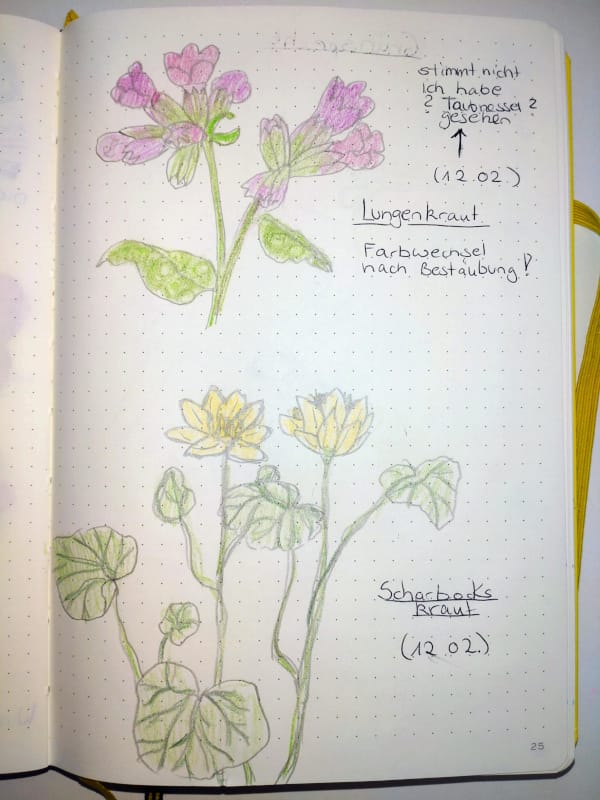 stimmt nicht
ich habe
? Taubnessel ?
gesehen
(12.02)
Lungenkraut
Farbwechsel
nach Bestäubung!
Scharbocks
kraut
(12.02.)
25